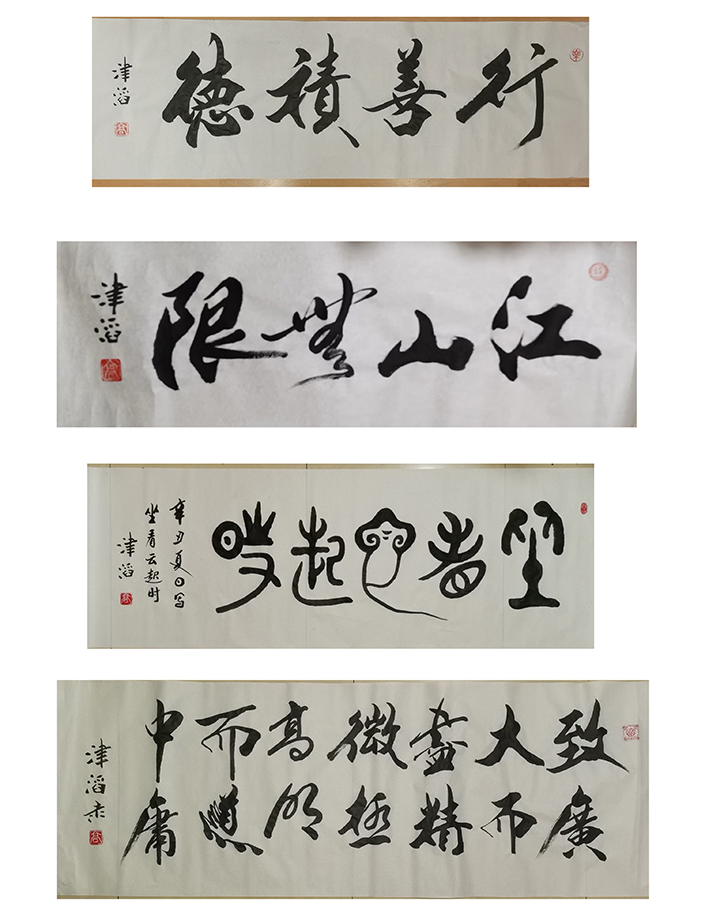 行善積德
津滔
江山無限
津滔
坐看云起時
辛丑夏日写
坐看云起时
津滔
致廣
大而
盡精
微極
高明
而道
中庸
津滔